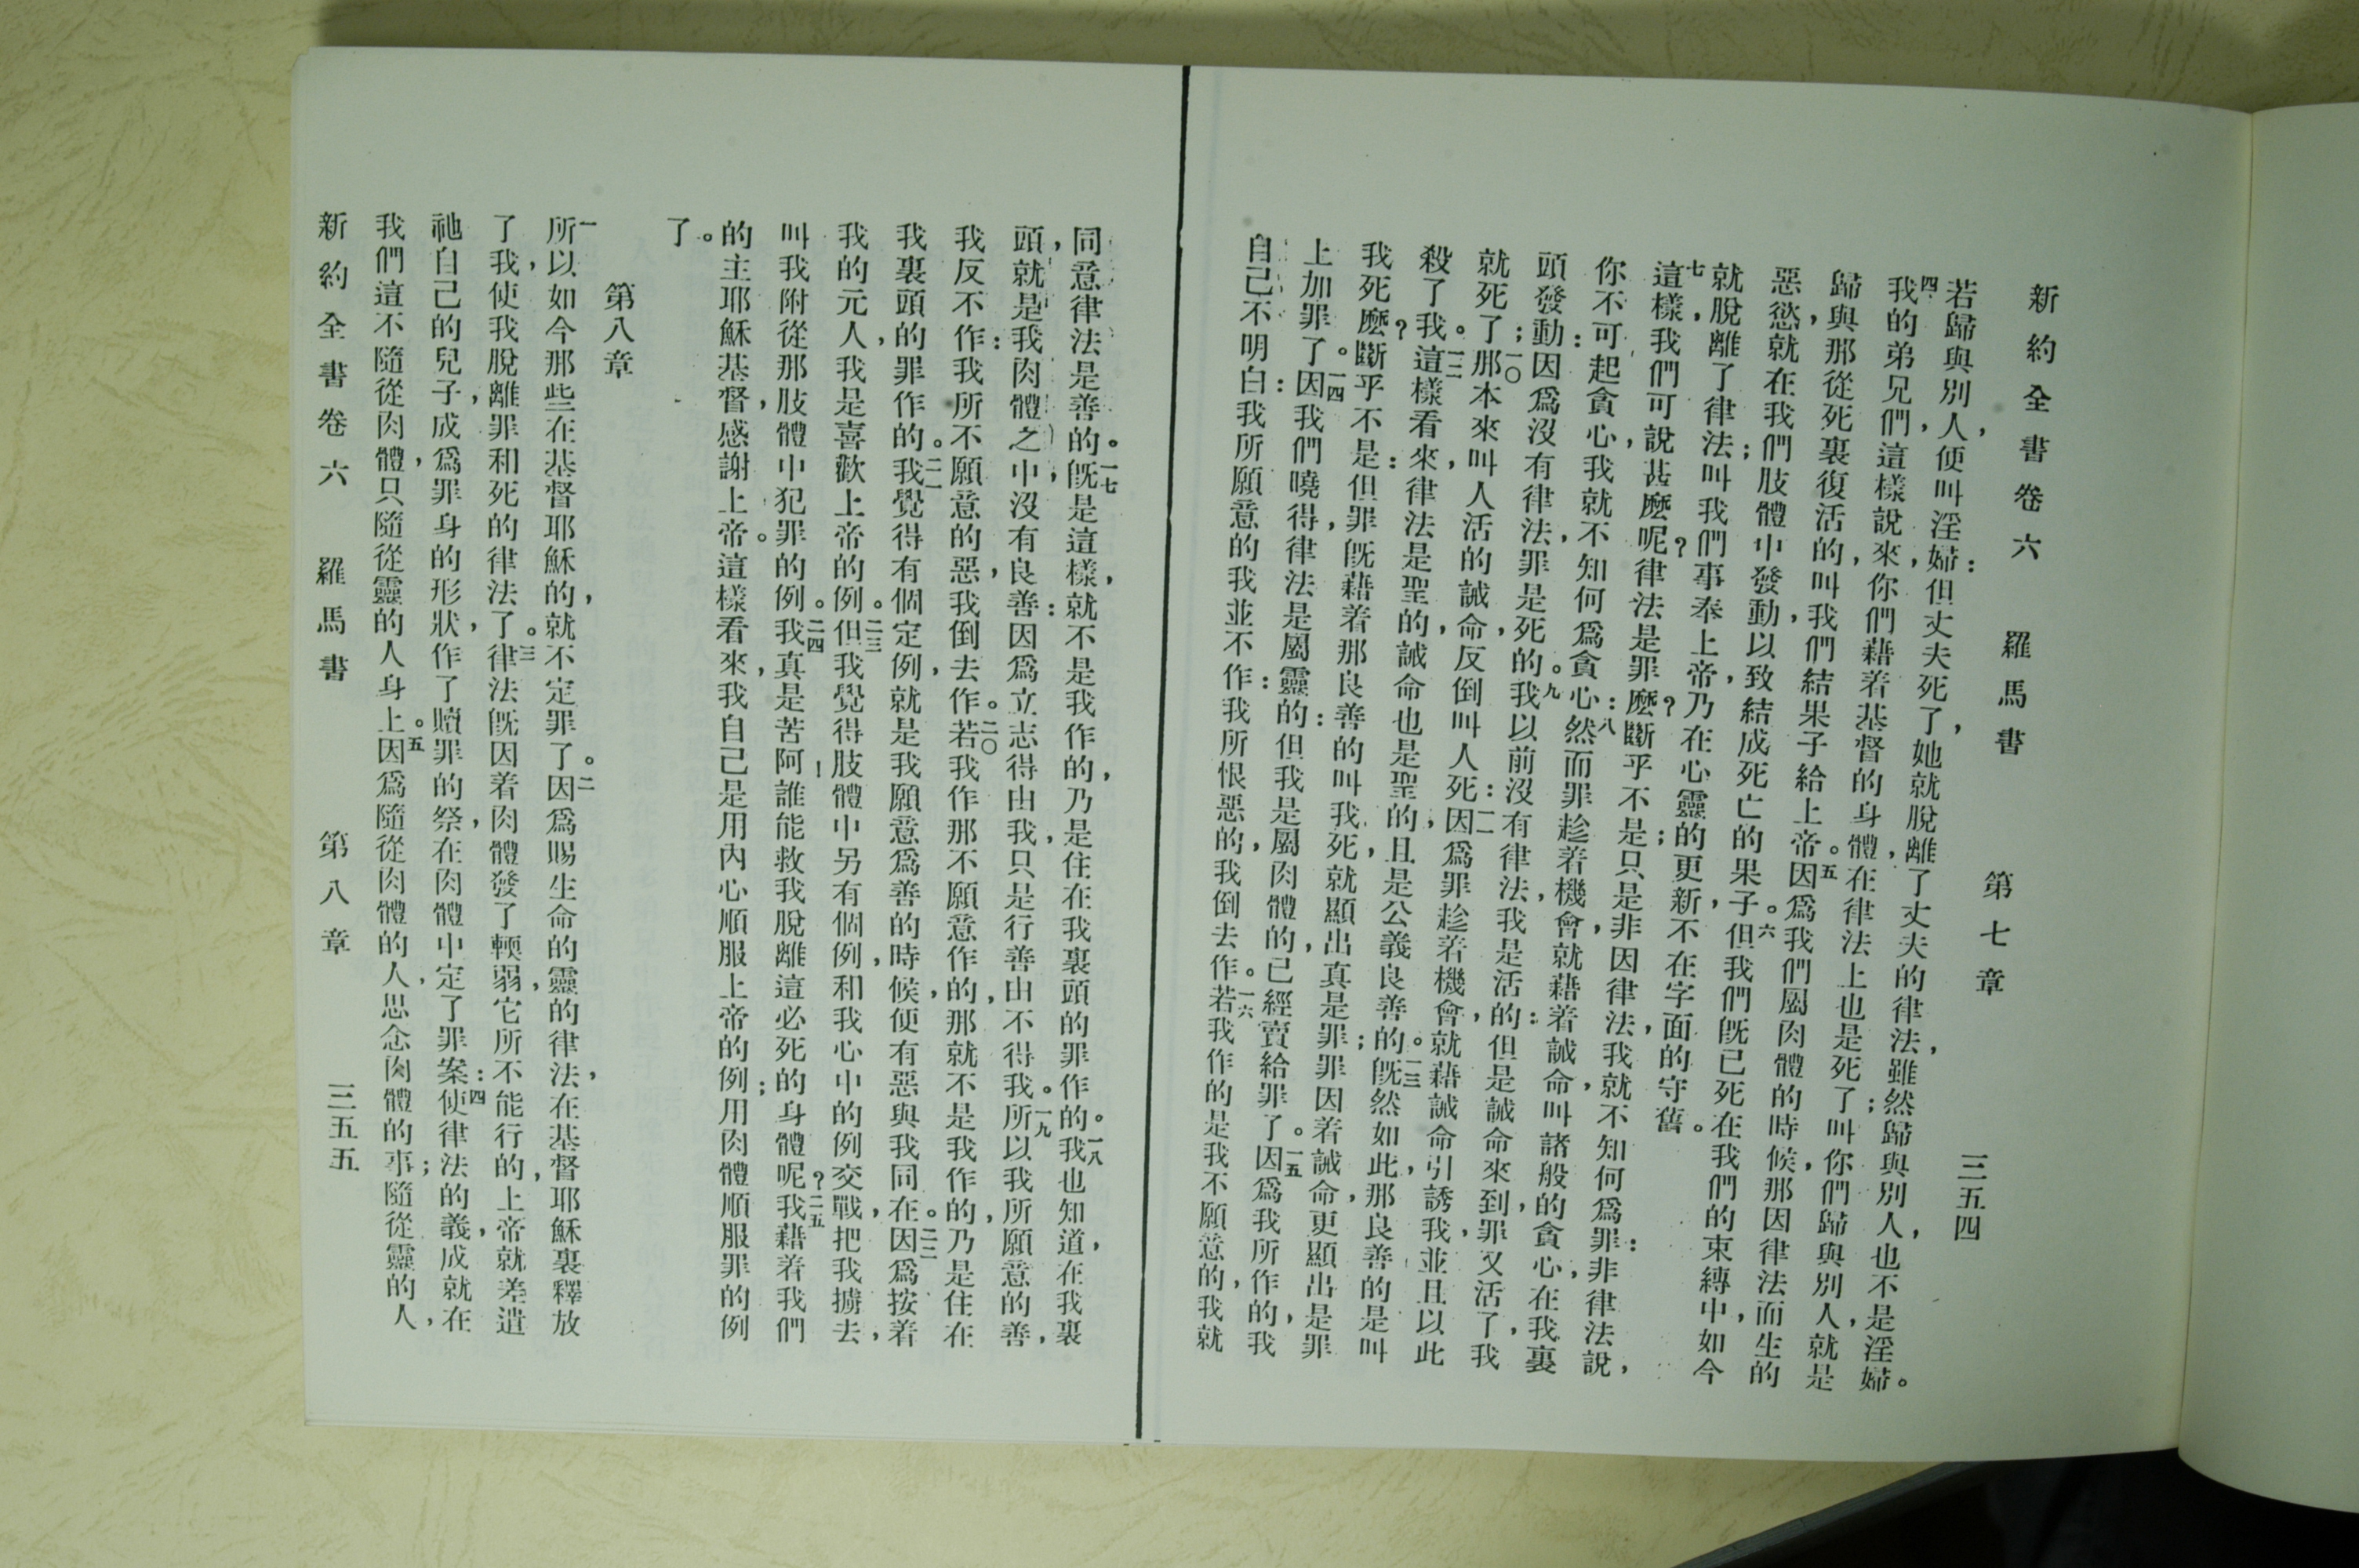 新約全書卷六 羅馬書 第七章 三五四
若歸與別人，便叫淫婦：但丈夫死了，她就脫離了丈夫的律法，雖然歸與別人，也不是淫婦。
四我的弟兄們，這樣說來，你們藉着基督的身體，在律法上也是死了；叫你們歸與別人，就是
歸與那從死裏復活的，叫我們結果子給上帝。五因爲我們屬肉體的時候，那因律法而生的
惡慾，就在我們肢體中發動，以致結成死亡的果子。六但我們旣已死在我們的束縛中，如今
就脫離了律法；叫我們事奉上帝，乃在心靈的更新，不在字面的守舊。
七這樣，我們可說甚麼呢？律法是罪麼？斷乎不是；只是非因律法，我就不知何爲罪：非律法說，
你不可起貪心，我就不知何爲貪心：八然而罪趁着機會，就藉着誡命，叫諸般的貪心，在我裏
頭發動：因爲沒有律法，罪是死的。九我以前沒有律法，我是活的：但是誡命來到，罪又活了，我
就死了；一〇那本來叫人活的誡命，反倒叫人死：一一因爲罪趁着機會，就藉誡命引誘我，並且以此
殺了我。一二這樣看來，律法是聖的，誡命也是聖的，且是公義良善的。一三旣然如此，那良善的是叫
我死麼？斷乎不是：但罪旣藉着那良善的叫我死，就顯出真是罪；罪因着誡命，更顯出是罪
上加罪了。一四因我們曉得，律法是屬靈的：但我是屬肉體的，已經賣給罪了。一五因爲我所作的，我
自己不明白：我所願意的，我並不作：我所恨惡的，我倒去作。一六若我作的，是我不願意的，我就
同意律法是善的。一七旣是這樣，就不是我作的，乃是住在我裏頭的罪作的。一八我也知道，在我裏
頭，就是我肉體之中，沒有良善：因爲立志得由我，只是行善由不得我。一九所以我所願意的善，
我反不作：我所不願意的惡，我倒去作。二〇若我作那不願意作的，那就不是我作的，乃是住在
我裏頭的罪作的。二一我覺得有個定例，就是我願意爲善的時候，便有惡與我同在。二二因爲按着
我的元人，我是喜歡上帝的例。二三但我覺得肢體中另有個例，和我心中的例交戰，把我擄去，
叫我附從那肢體中犯罪的例。二四我真是苦阿！誰能救我脫離這必死的身體呢？二五我藉着我們
的主耶穌基督，感謝上帝。這樣看來，我自己是用內心順服上帝的例；用肉體順服罪的例
了。
第八章
一所以如今那些在基督耶穌的，就不定罪了。二因爲賜生命的靈的律法，在基督耶穌裏釋放
了我，使我脫離罪和死的律法了。三律法旣因着肉體發了輭弱，它所不能行的，上帝就差遣
祂自己的兒子，成爲罪身的形狀，作了贖罪的祭，在肉體中定了罪案：四使律法的義，成就在
我們這不隨從肉體，只隨從靈的人身上。五因爲隨從肉體的人，思念肉體的事；隨從靈的人，
新約全書卷六 羅馬書 第八章 三五五